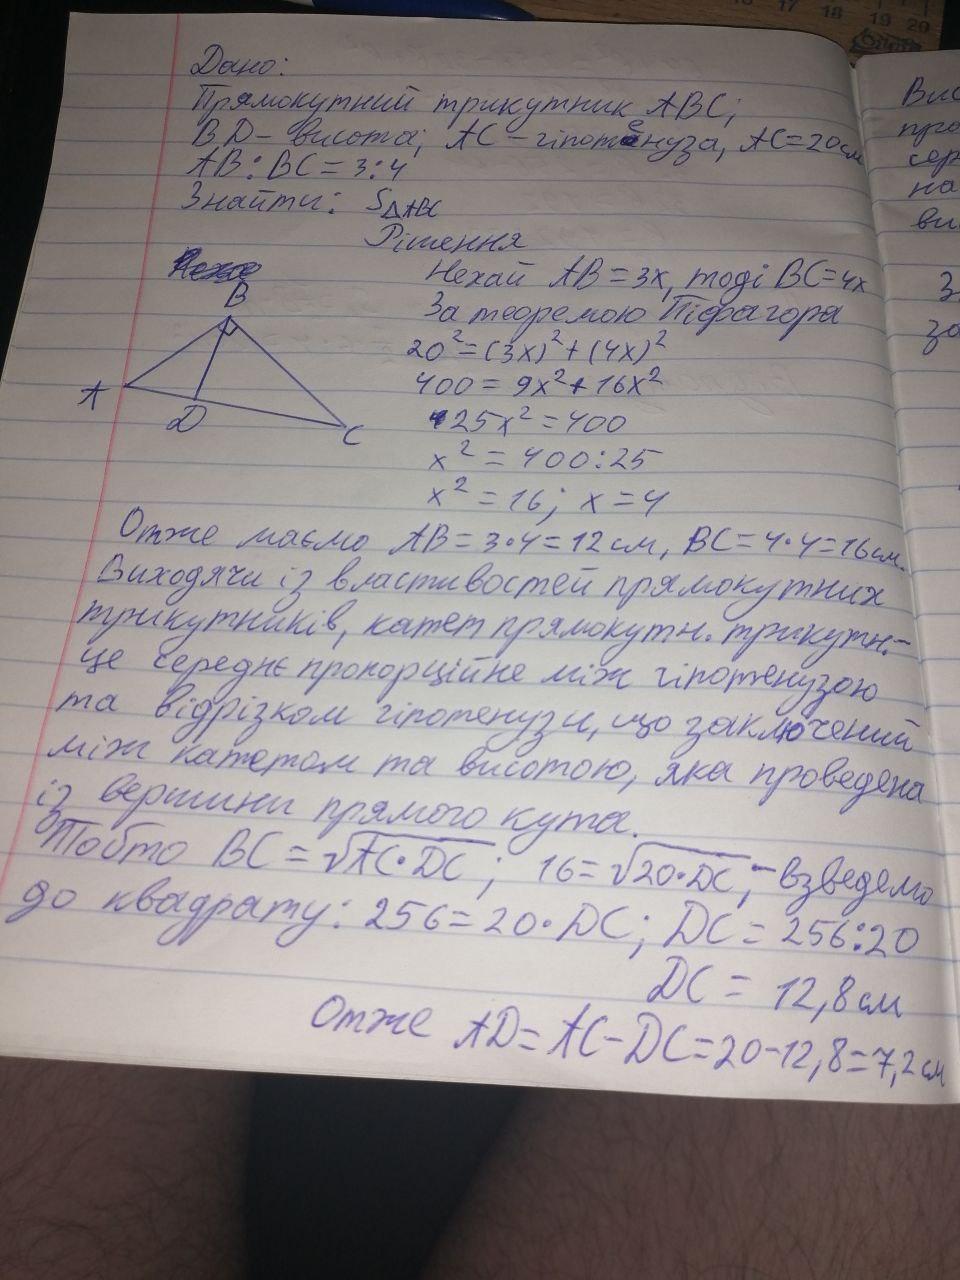 16 17 18 19 20
Дано:
Прямокутний трикутник ABC;
BD - висота; AC - гіпотенуза, AC=20см
AB:BC=3:4
Знайти: S△ABC
Рішення
Нехай AB=3x, тоді BC=4x
За теоремою Піфагора
20²=(3x)²+(4x)²
400=9x²+16x²
25x²=400
x²=400:25
x²=16; x=4
B
A
D
C
Отже маємо AB=3·4=12см, BC=4·4=16см.
Виходячи із властивостей прямокутних
трикутників, катет прямокутн. трикутн.-
це середнє пропорційне між гіпотенузою
та відрізком гіпотенузи, що заключений
між катетом та висотою, яка проведена
із вершини прямого кута.
Тобто BC=√AC·DC; 16=√20·DC; - взведемо
до квадрату: 256=20·DC; DC=256:20
DC = 12,8см
Отже AD=AC-DC=20-12,8=7,2см
Вис
про
сер
на
ви
З
за